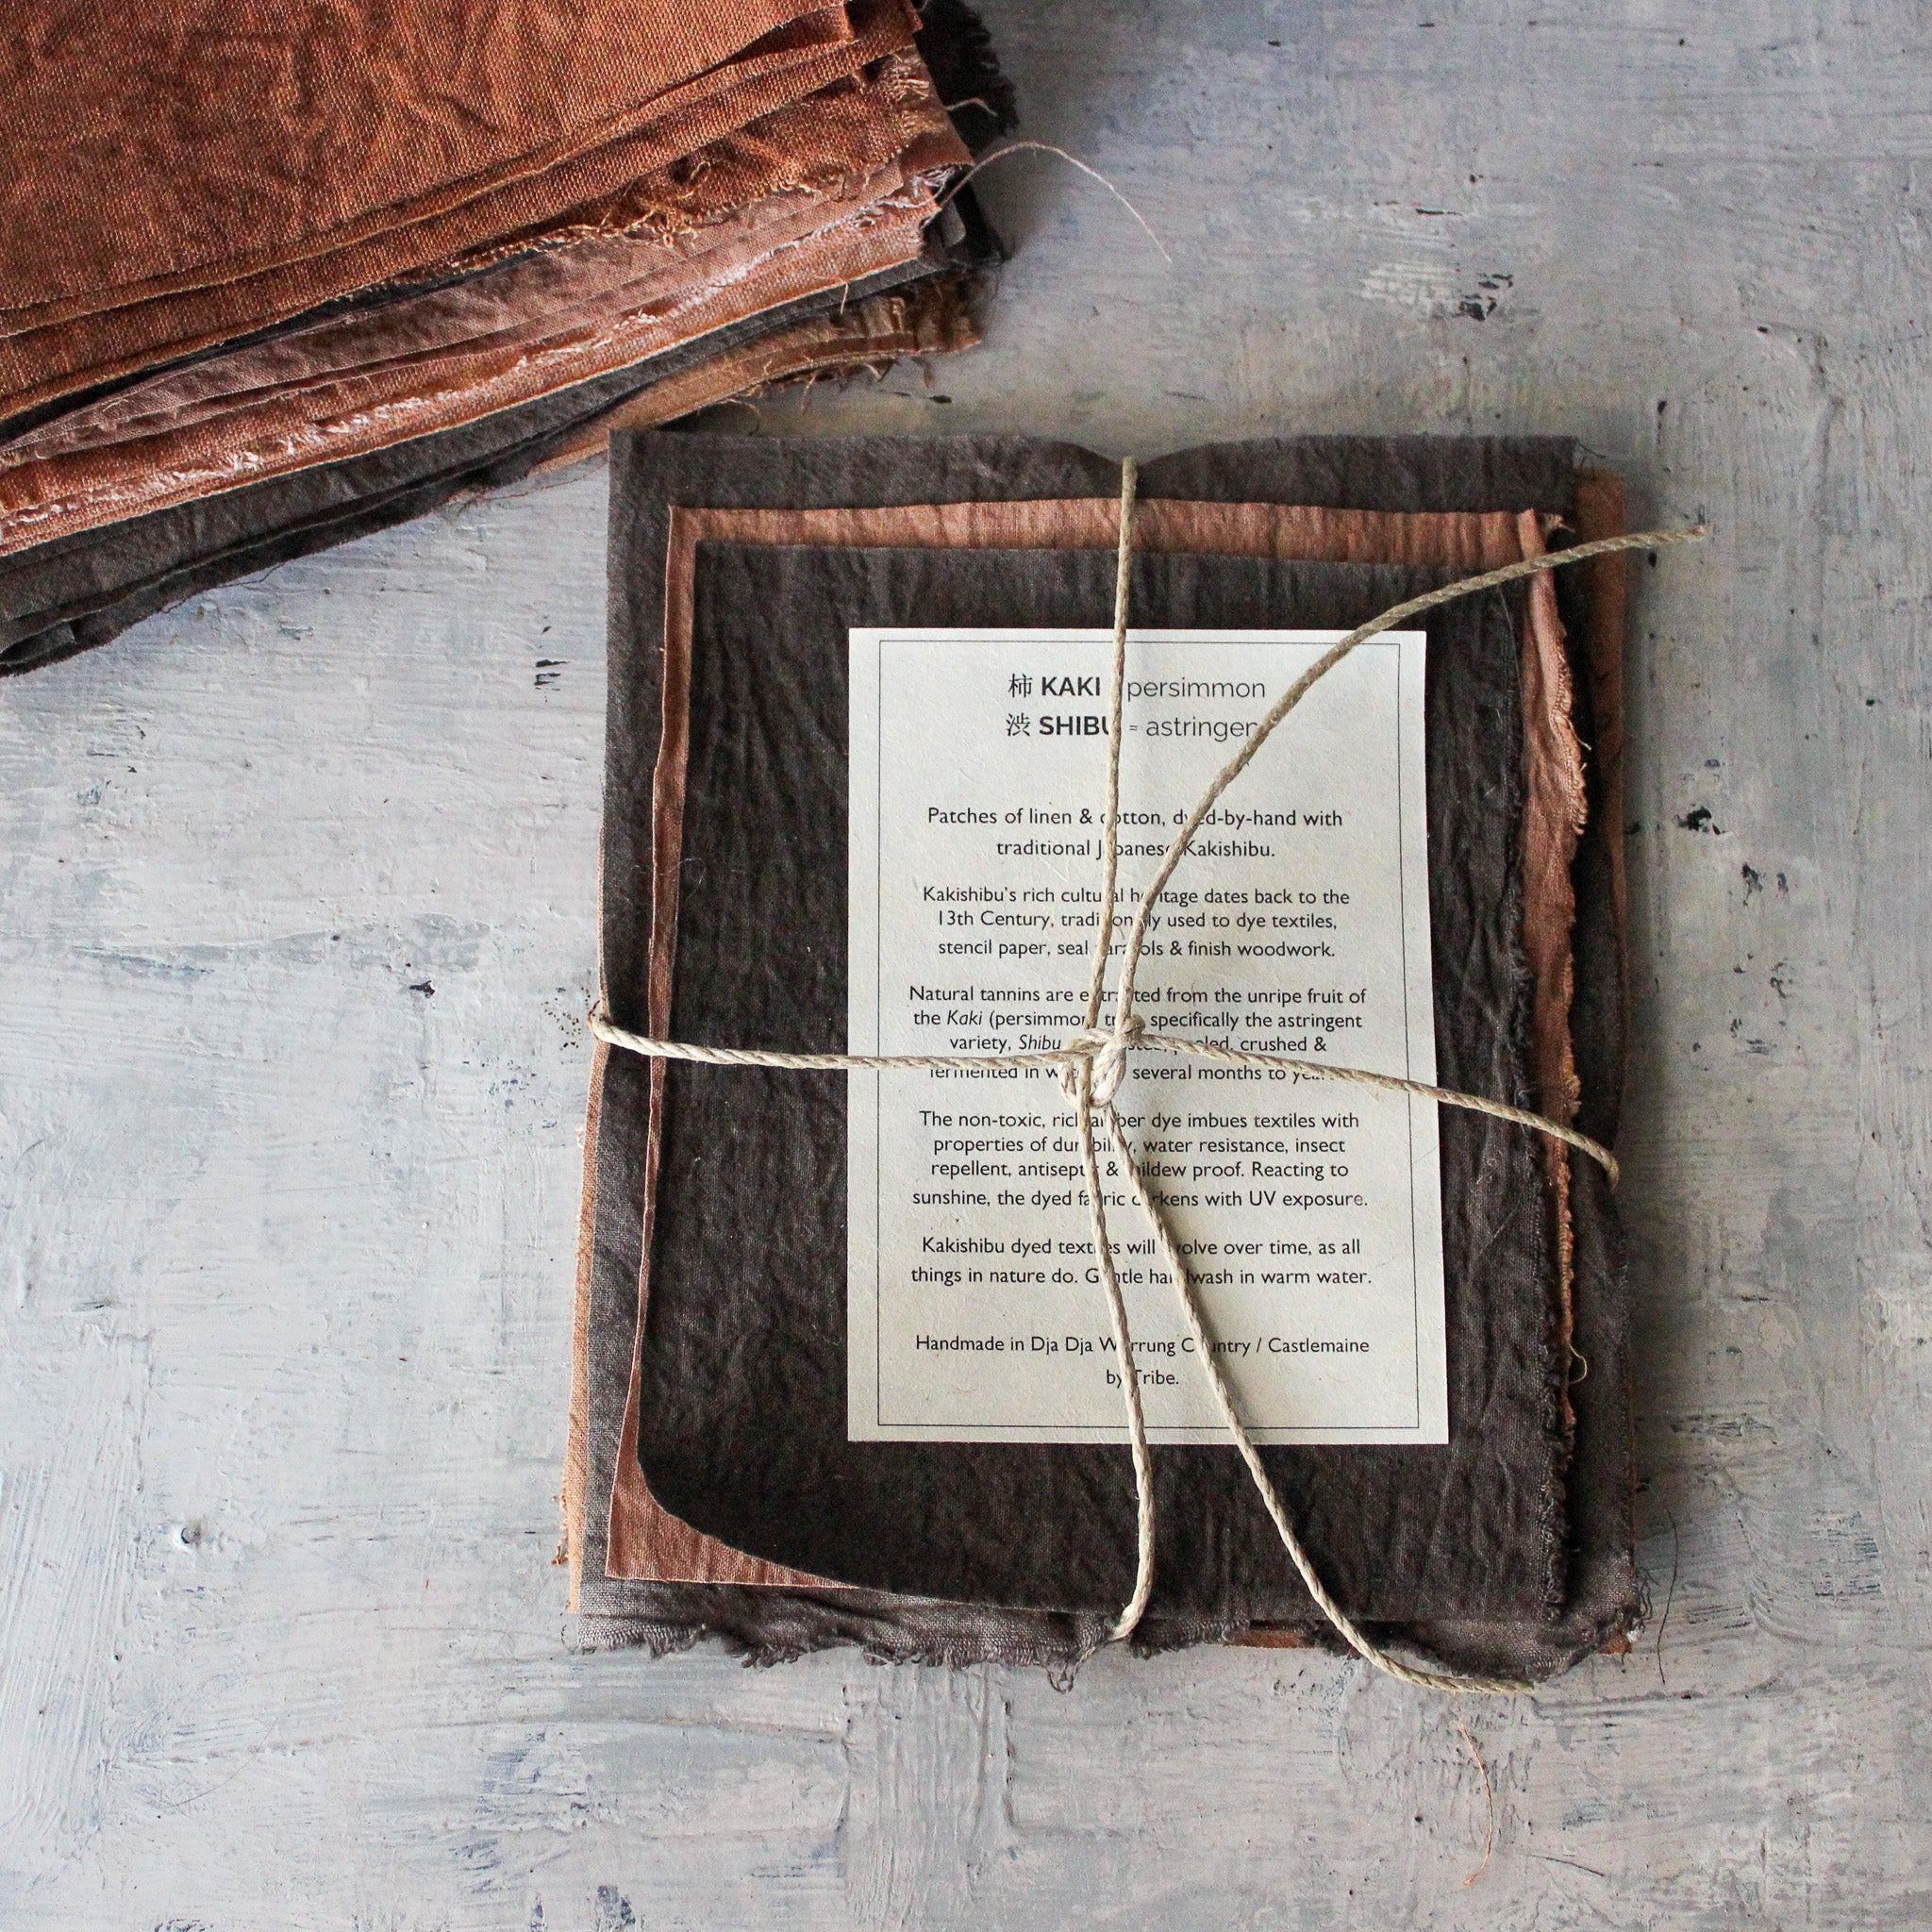 柿 KAKI persimmon
渋 SHIBU = astringent
Patches of linen & cotton, dyed-by-hand with
traditional Japanese Kakishibu.
Kakishibu's rich cultural heritage dates back to the
13th Century, traditionally used to dye textiles,
stencil paper, seal parasols & finish woodwork.
Natural tannins are extracted from the unripe fruit of
the Kaki (persimmon) tree, specifically the astringent
variety, Shibu pulped, crushed &
fermented in several months to years.
The non-toxic, rich amber dye imbues textiles with
properties of durability, water resistance, insect
repellent, antiseptic & mildew proof. Reacting to
sunshine, the dyed fabric darkens with UV exposure.
Kakishibu dyed textiles will evolve over time, as all
things in nature do. Gentle handwash in warm water.
Handmade in Dja Dja Warrung Country / Castlemaine
by Tribe.